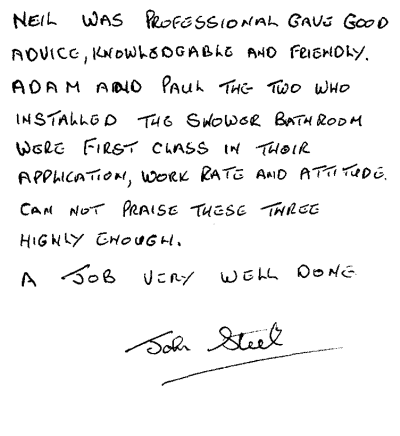 NEIL WAS PROFESSIONAL GAVE GOOD
ADVICE, KNOWLEDGABLE AND FRIENDLY.
ADAM AND PAUL THE TWO WHO
INSTALLED THE SHOWER BATHROOM
WERE FIRST CLASS IN THEIR
APPLICATION, WORK RATE AND ATTITUDE.
CAN NOT PRAISE THESE THREE
HIGHLY ENOUGH.
A JOB VERY WELL DONE
John Steel